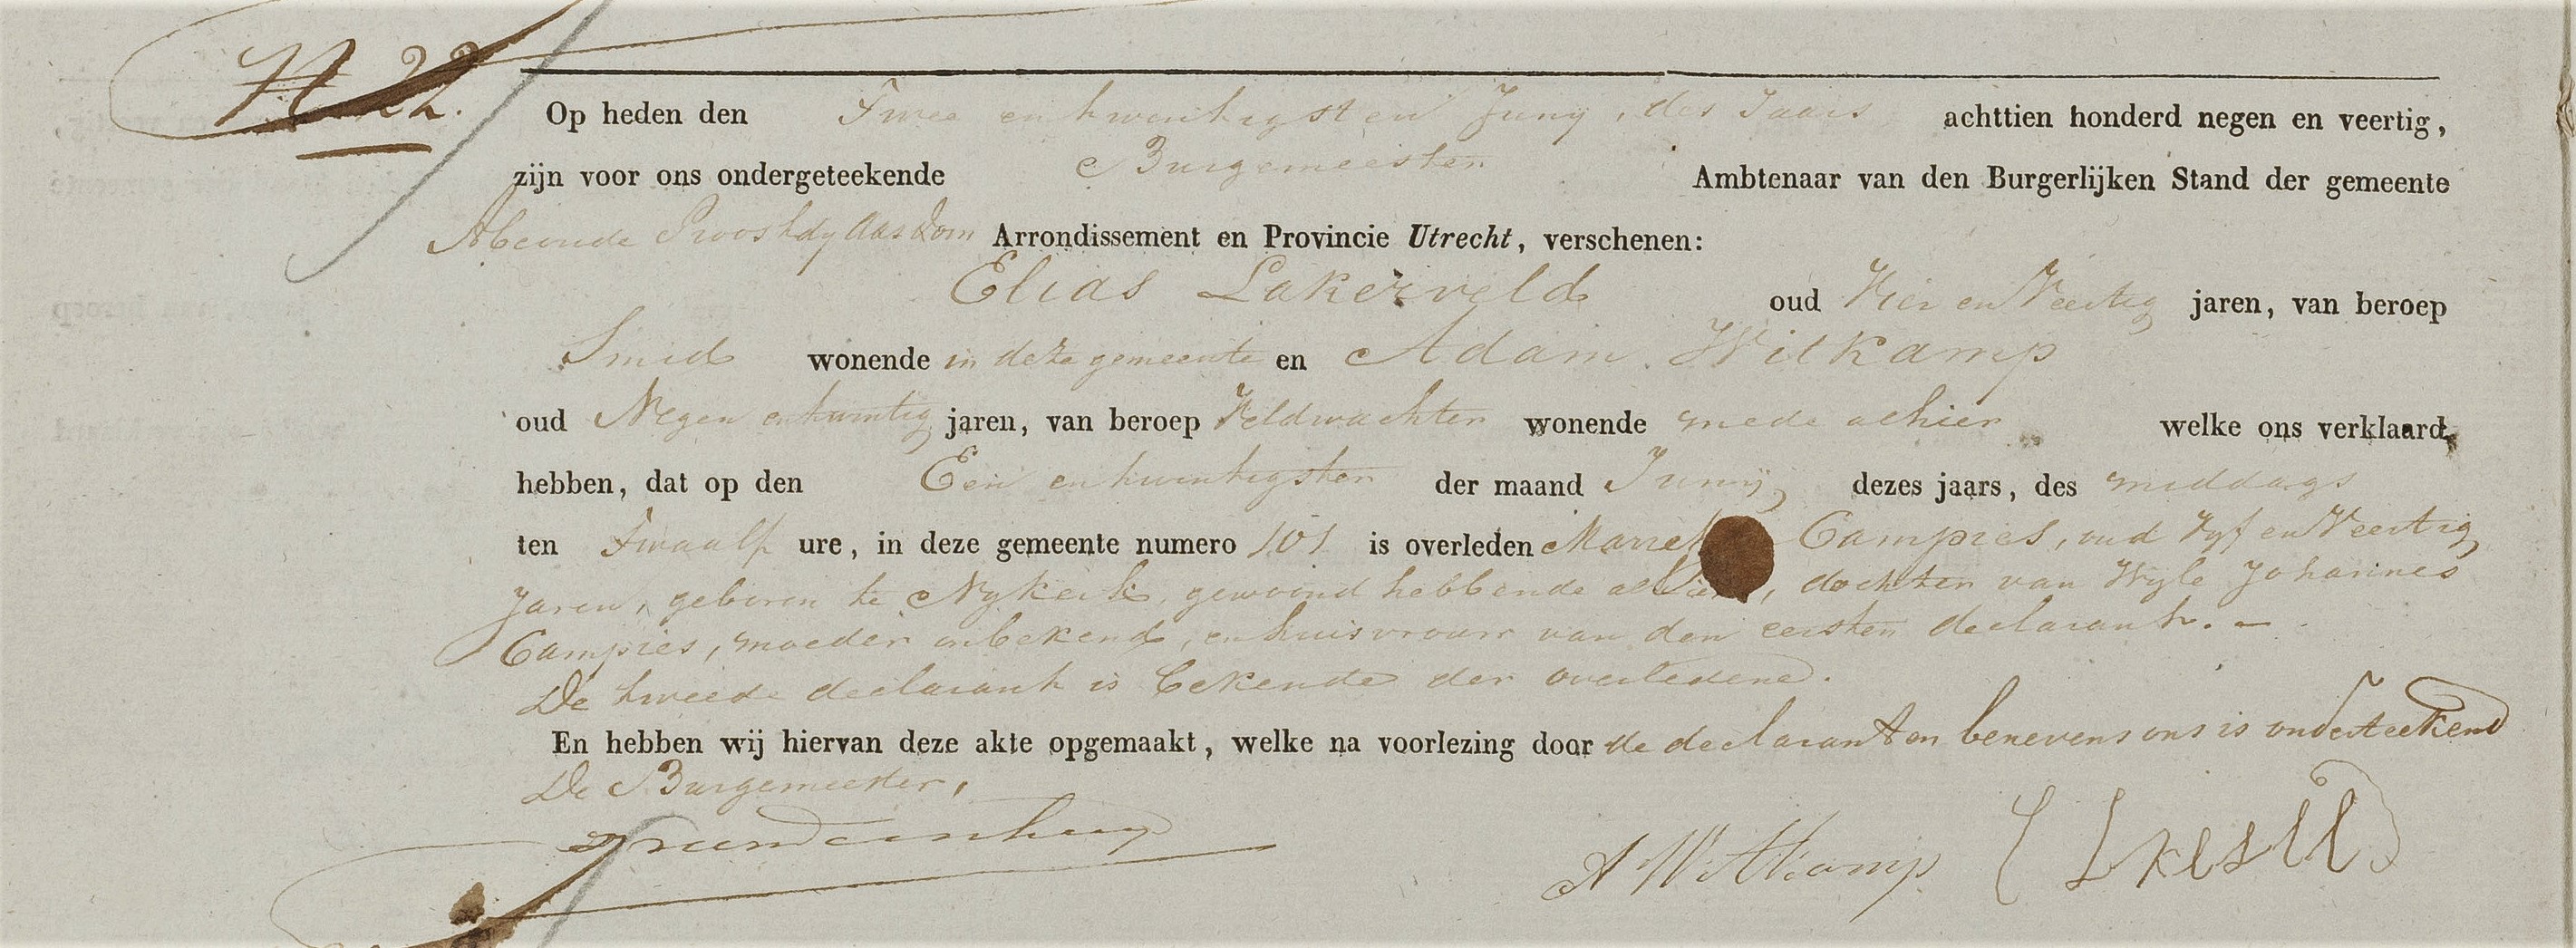 N 22.
Op heden den Twee en twintigsten Juny, des Jaars achttien honderd negen en veertig,
zijn voor ons ondergeteekende Burgemeester Ambtenaar van den Burgerlijken Stand der gemeente
Abcoude Proostdy Aasdom Arrondissement en Provincie Utrecht, verschenen:
Elias Lakerveld oud Vier en Veertig jaren, van beroep
Smid wonende in deze gemeente en Adam Witkamp
oud Negen en twintig jaren, van beroep Veldwachter wonende mede alhier welke ons verklaard
hebben, dat op den Een en twintigsten der maand Juny dezes jaars, des middags
ten Twaalf ure, in deze gemeente numero 101 is overleden Campies, oud Vyf en Veertig
Jaren, geboren te Nykerk, gewoond hebbende alhier, dochter van Wyle Johannes
Campies, moeder onbekend, en huisvrouw van den eersten declarant. –
De tweede declarant is bekende der overledene.
En hebben wij hiervan deze akte opgemaakt, welke na voorlezing door de declaranten benevens ons is onderteekend
De Burgemeester,
A Witkamp